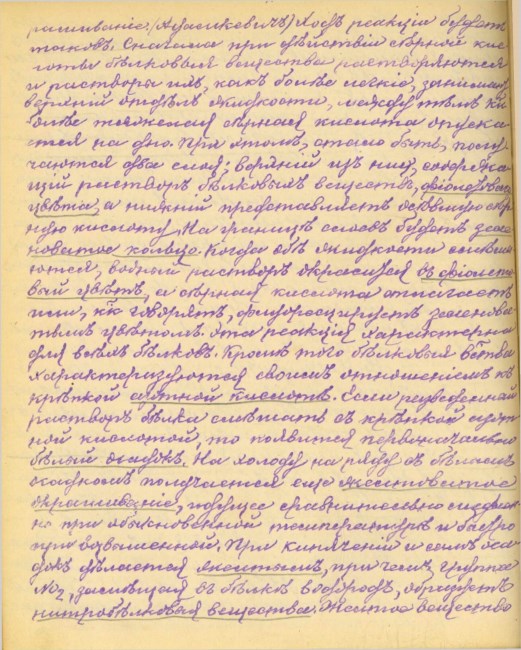 рашиваніе. (Адамкевичъ) Ходъ реакціи будетъ
таковъ. Сначала при дѣйствіи сѣрной кис-
лоты бѣлковыя вещества растворяются
и растворы ихъ, какъ болѣе легкіе, занимаютъ
верхній отдѣлъ жидкости, между тѣмъ какъ
болѣе тяжелая сѣрная кислота опуска-
ется на дно. При этомъ, стало быть, полу-
чаются два слоя; верхній изъ нихъ, содержа-
щій растворъ бѣлковыхъ веществъ, фіолетоваго
цвѣта, а нижній представляетъ осѣвшую сѣр-
ную кислоту. На границѣ слоевъ будетъ зеле-
новатое кольцо. Когда обѣ жидкости смѣши-
ются, водный растворъ окрасится въ фіолето-
вый цвѣтъ, а сѣрная кислота отличаетъ
или, к̃къ говорятъ, флуоресцируетъ зеленова-
тымъ цвѣтомъ. Эта реакція характерна
для всѣхъ бѣлковъ. Кромѣ того бѣлковыя в̃ства
характеризуются своимъ отношеніемъ къ
крѣпкой азотной кислотѣ. Если разведенный
растворъ бѣлка смѣшать съ крѣпкой азот-
ной кислотой, то появится первоначально
бѣлый осадокъ. На холоду на ряду съ бѣлымъ
осадкомъ получается еще желтоватое
окрашиваніе, идущее сравнительно медлен-
но при обыкновенной температурѣ и быстро
при возвышенной. При кипяченіи и самъ оса-
докъ дѣлается желтымъ, при чемъ группа
NO₂, замѣщая въ бѣлкѣ водородъ, образуетъ
нитробѣлковыя вещества. Желтое вещество